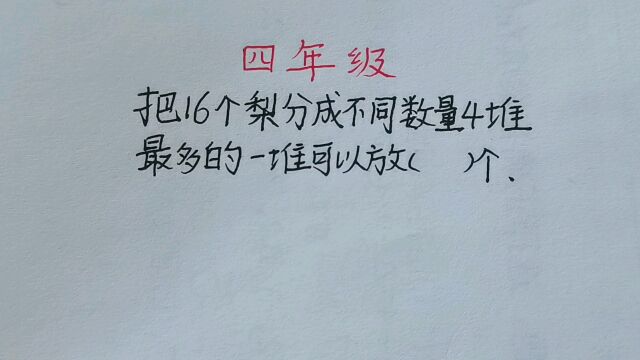 四年级
把16个梨分成不同数量4堆
最多的一堆可以放( )个.